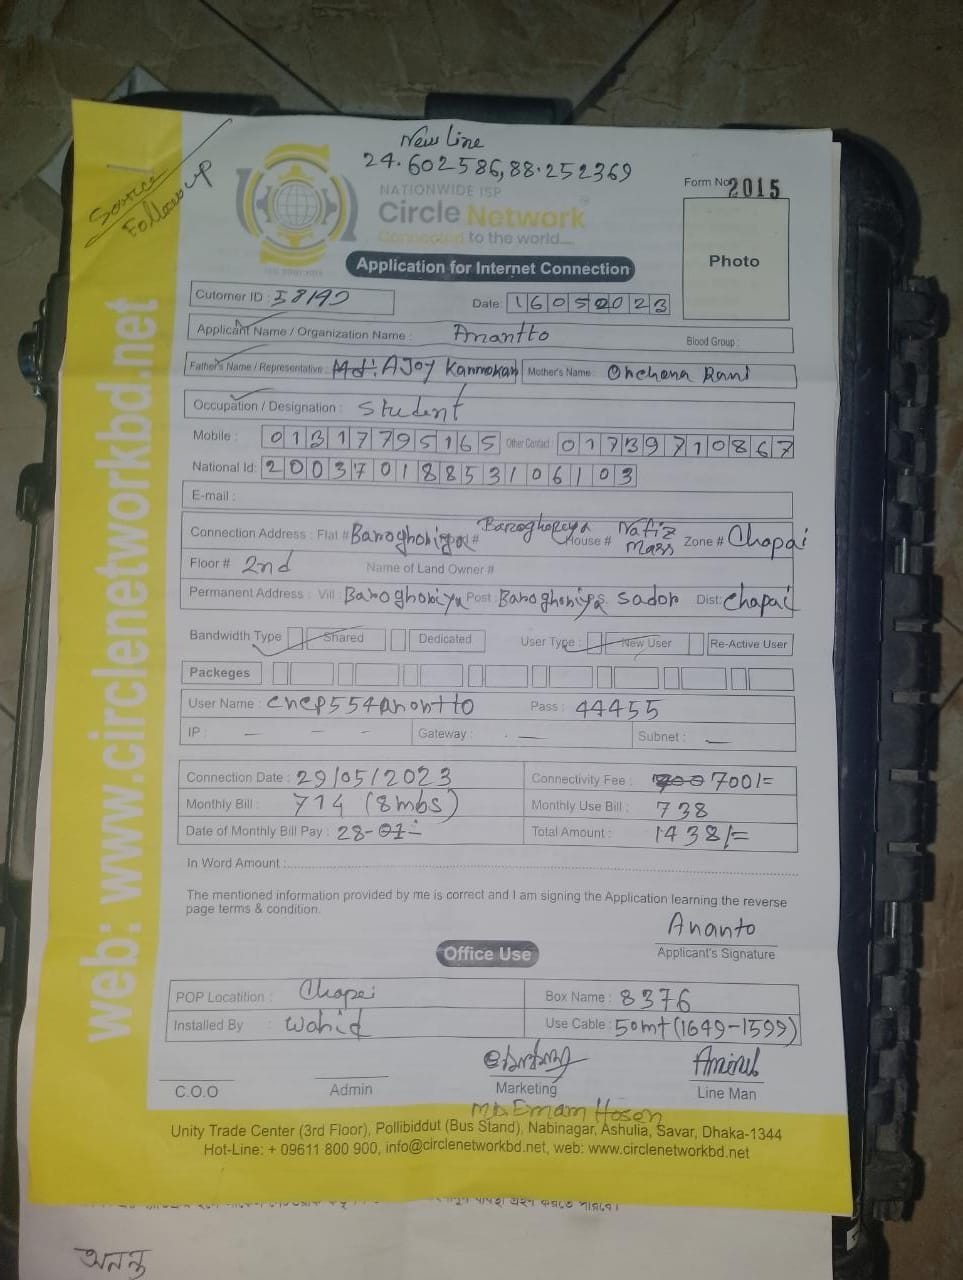 New line
24.602586,88.252369
Source
Followup
NATIONWIDE ISP
Circle Network
Connected to the world....
Form No 2015
Photo
Application for Internet Connection
Cutomer ID : 58190
Date: 16052023
Applicant Name / Organization Name : Anantto
Blood Group :
Father's Name / Representative : Md: AJoy Kanmokan
Mother's Name : Onchona Rani
Occupation / Designation : Student
Mobile : 01317795165 Other Contact : 01739710867
National Id: 20037018853106103
E-mail :
Connection Address : Flat # Baroghoriya # Baroghoreya House # Nafiz Mass Zone # Chapai
Floor # 2nd Name of Land Owner #
Permanent Address : Vill : Baroghoriya Post : Baroghoriya Sador Dist: Chapai
Bandwidth Type Shared Dedicated User Type : New User Re-Active User
Packeges
User Name : cnep554anontto Pass : 44455
IP : - - - Gateway : - Subnet : -
Connection Date : 29/05/2023 Connectivity Fee : 700 700/=
Monthly Bill : 714 (8mbs) Monthly Use Bill : 738
Date of Monthly Bill Pay : 28-01- Total Amount : 1438/=
In Word Amount :
The mentioned information provided by me is correct and I am signing the Application learning the reverse
page terms & condition.
Ananto
Applicant's Signature
Office Use
POP Locatition : Chapai Box Name : 8376
Installed By : Wahid Use Cable : 50mt (1649-1599)
Aminul
C.O.O Admin Marketing Line Man
Md. Emam Hosen
Unity Trade Center (3rd Floor), Pollibiddut (Bus Stand), Nabinagar, Ashulia, Savar, Dhaka-1344
Hot-Line: + 09611 800 900, info@circlenetworkbd.net, web: www.circlenetworkbd.net
web: www.circlenetworkbd.net
অনন্ত